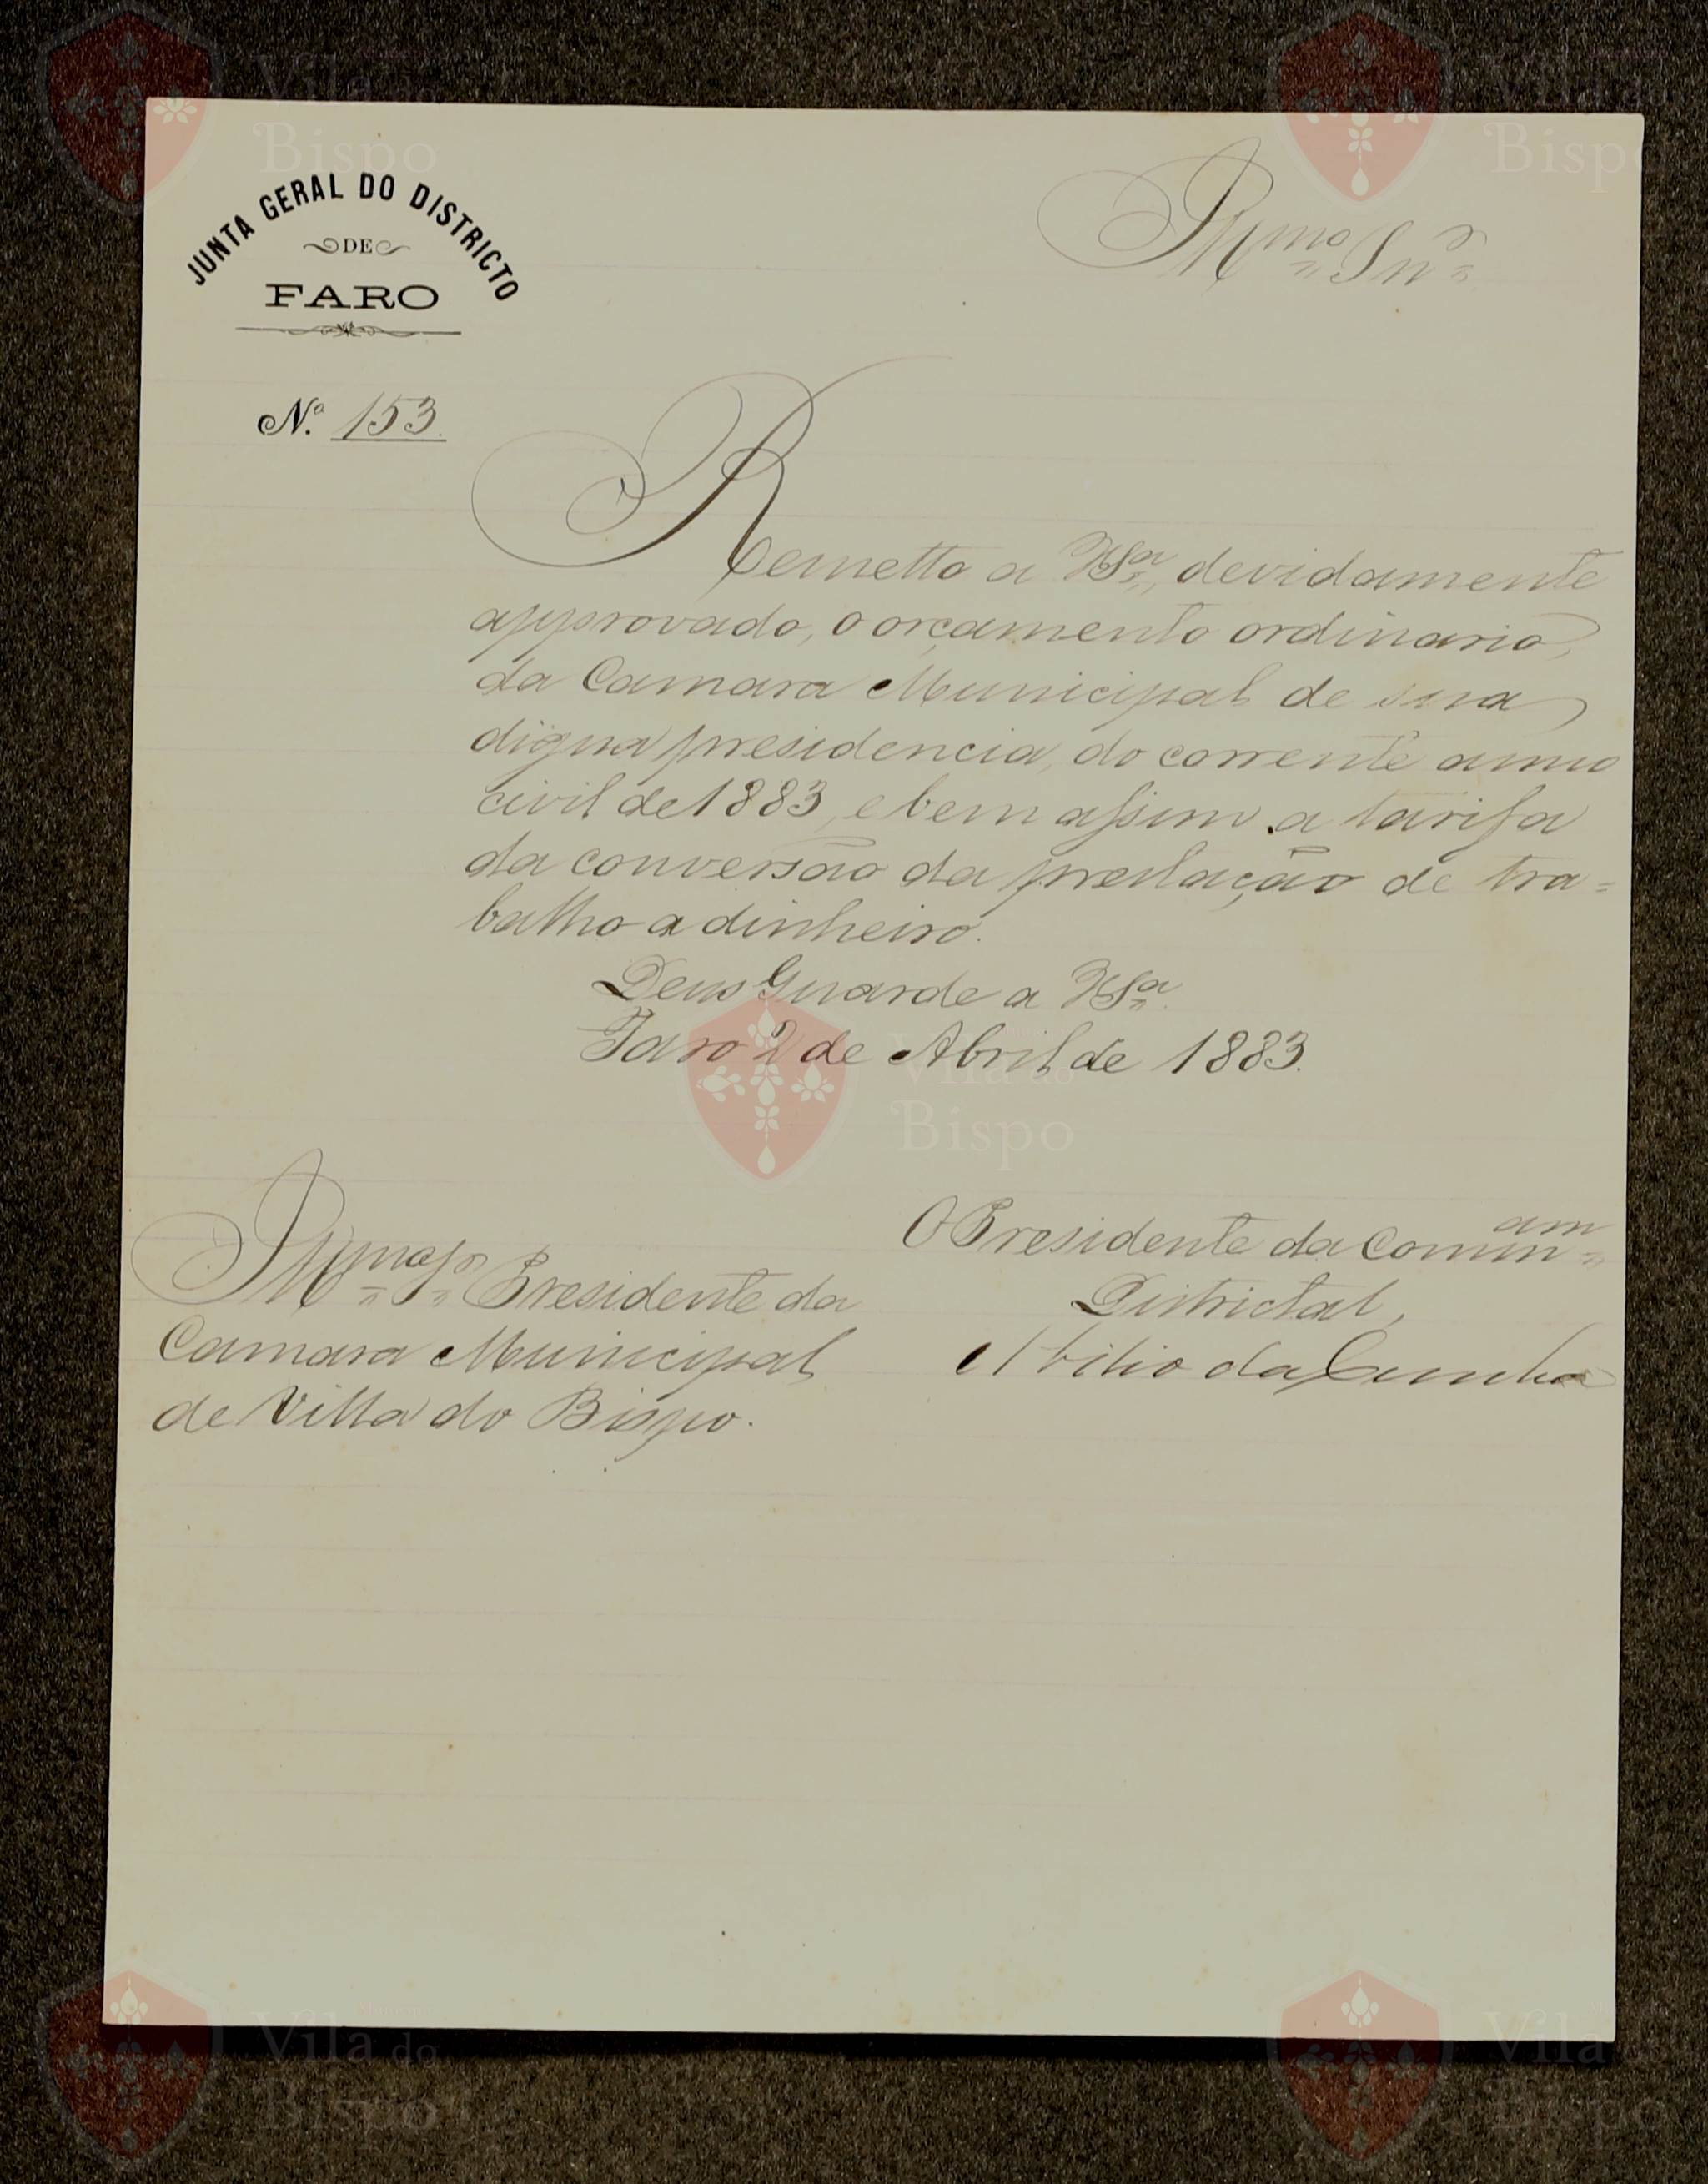 JUNTA GERAL DO DISTRICTO
DE
FARO
N.º 153.
Illmo Snr
Remetto a V Sa, devidamente
approvado, o orçamento ordinario,
da Camara Municipal de sua
digna presidencia, do corrente anno
civil de 1883, e bem assim a tarifa
da conversão da prestação de tra=
balho a dinheiro.
Deus Guarde a V Sa
Faro 2 de Abril de 1883.
O Presidente da Commam
Districtal,
Abilio da Cunha
Illmo Sr Presidente da
Camara Municipal
de Villa do Bispo.
Vila do
Bispo